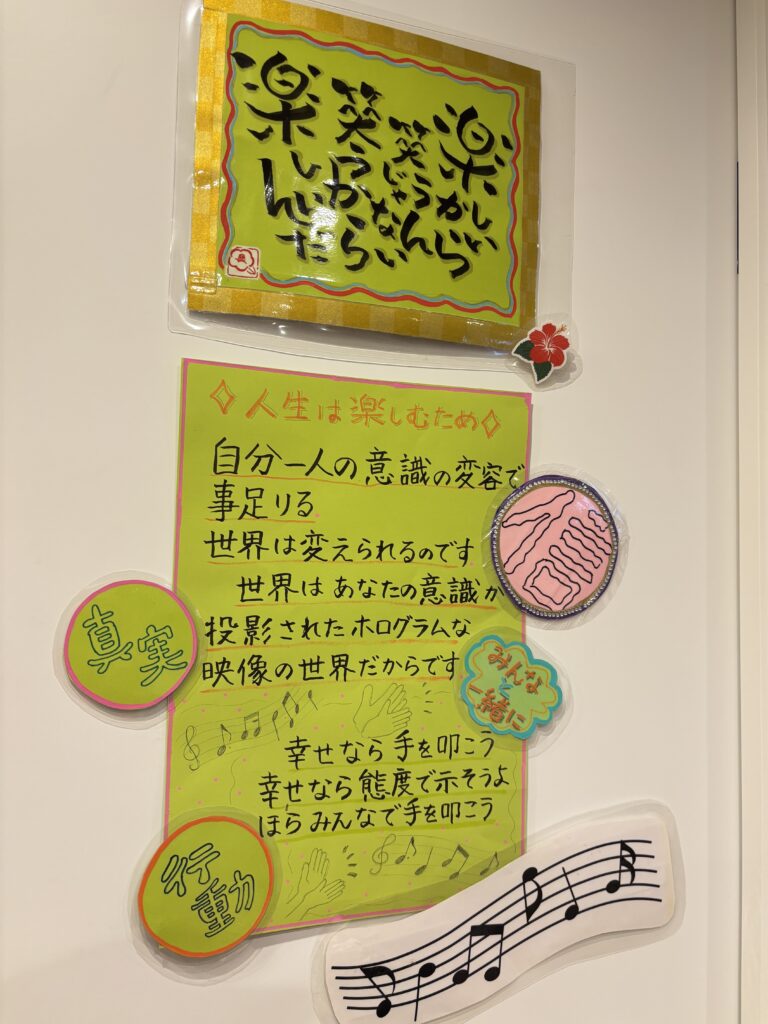 楽しい
から
笑うん
じゃない
笑うから
楽しいんだ
人生は楽しむため
自分一人の意識の変容で
事足りる
世界は変えられるのです
世界はあなたの意識が
投影されたホログラムな
映像の世界だからです
信
真実
みんな
と
一緒に
幸せなら手を叩こう
幸せなら態度で示そうよ
ほらみんなで手を叩こう
行動